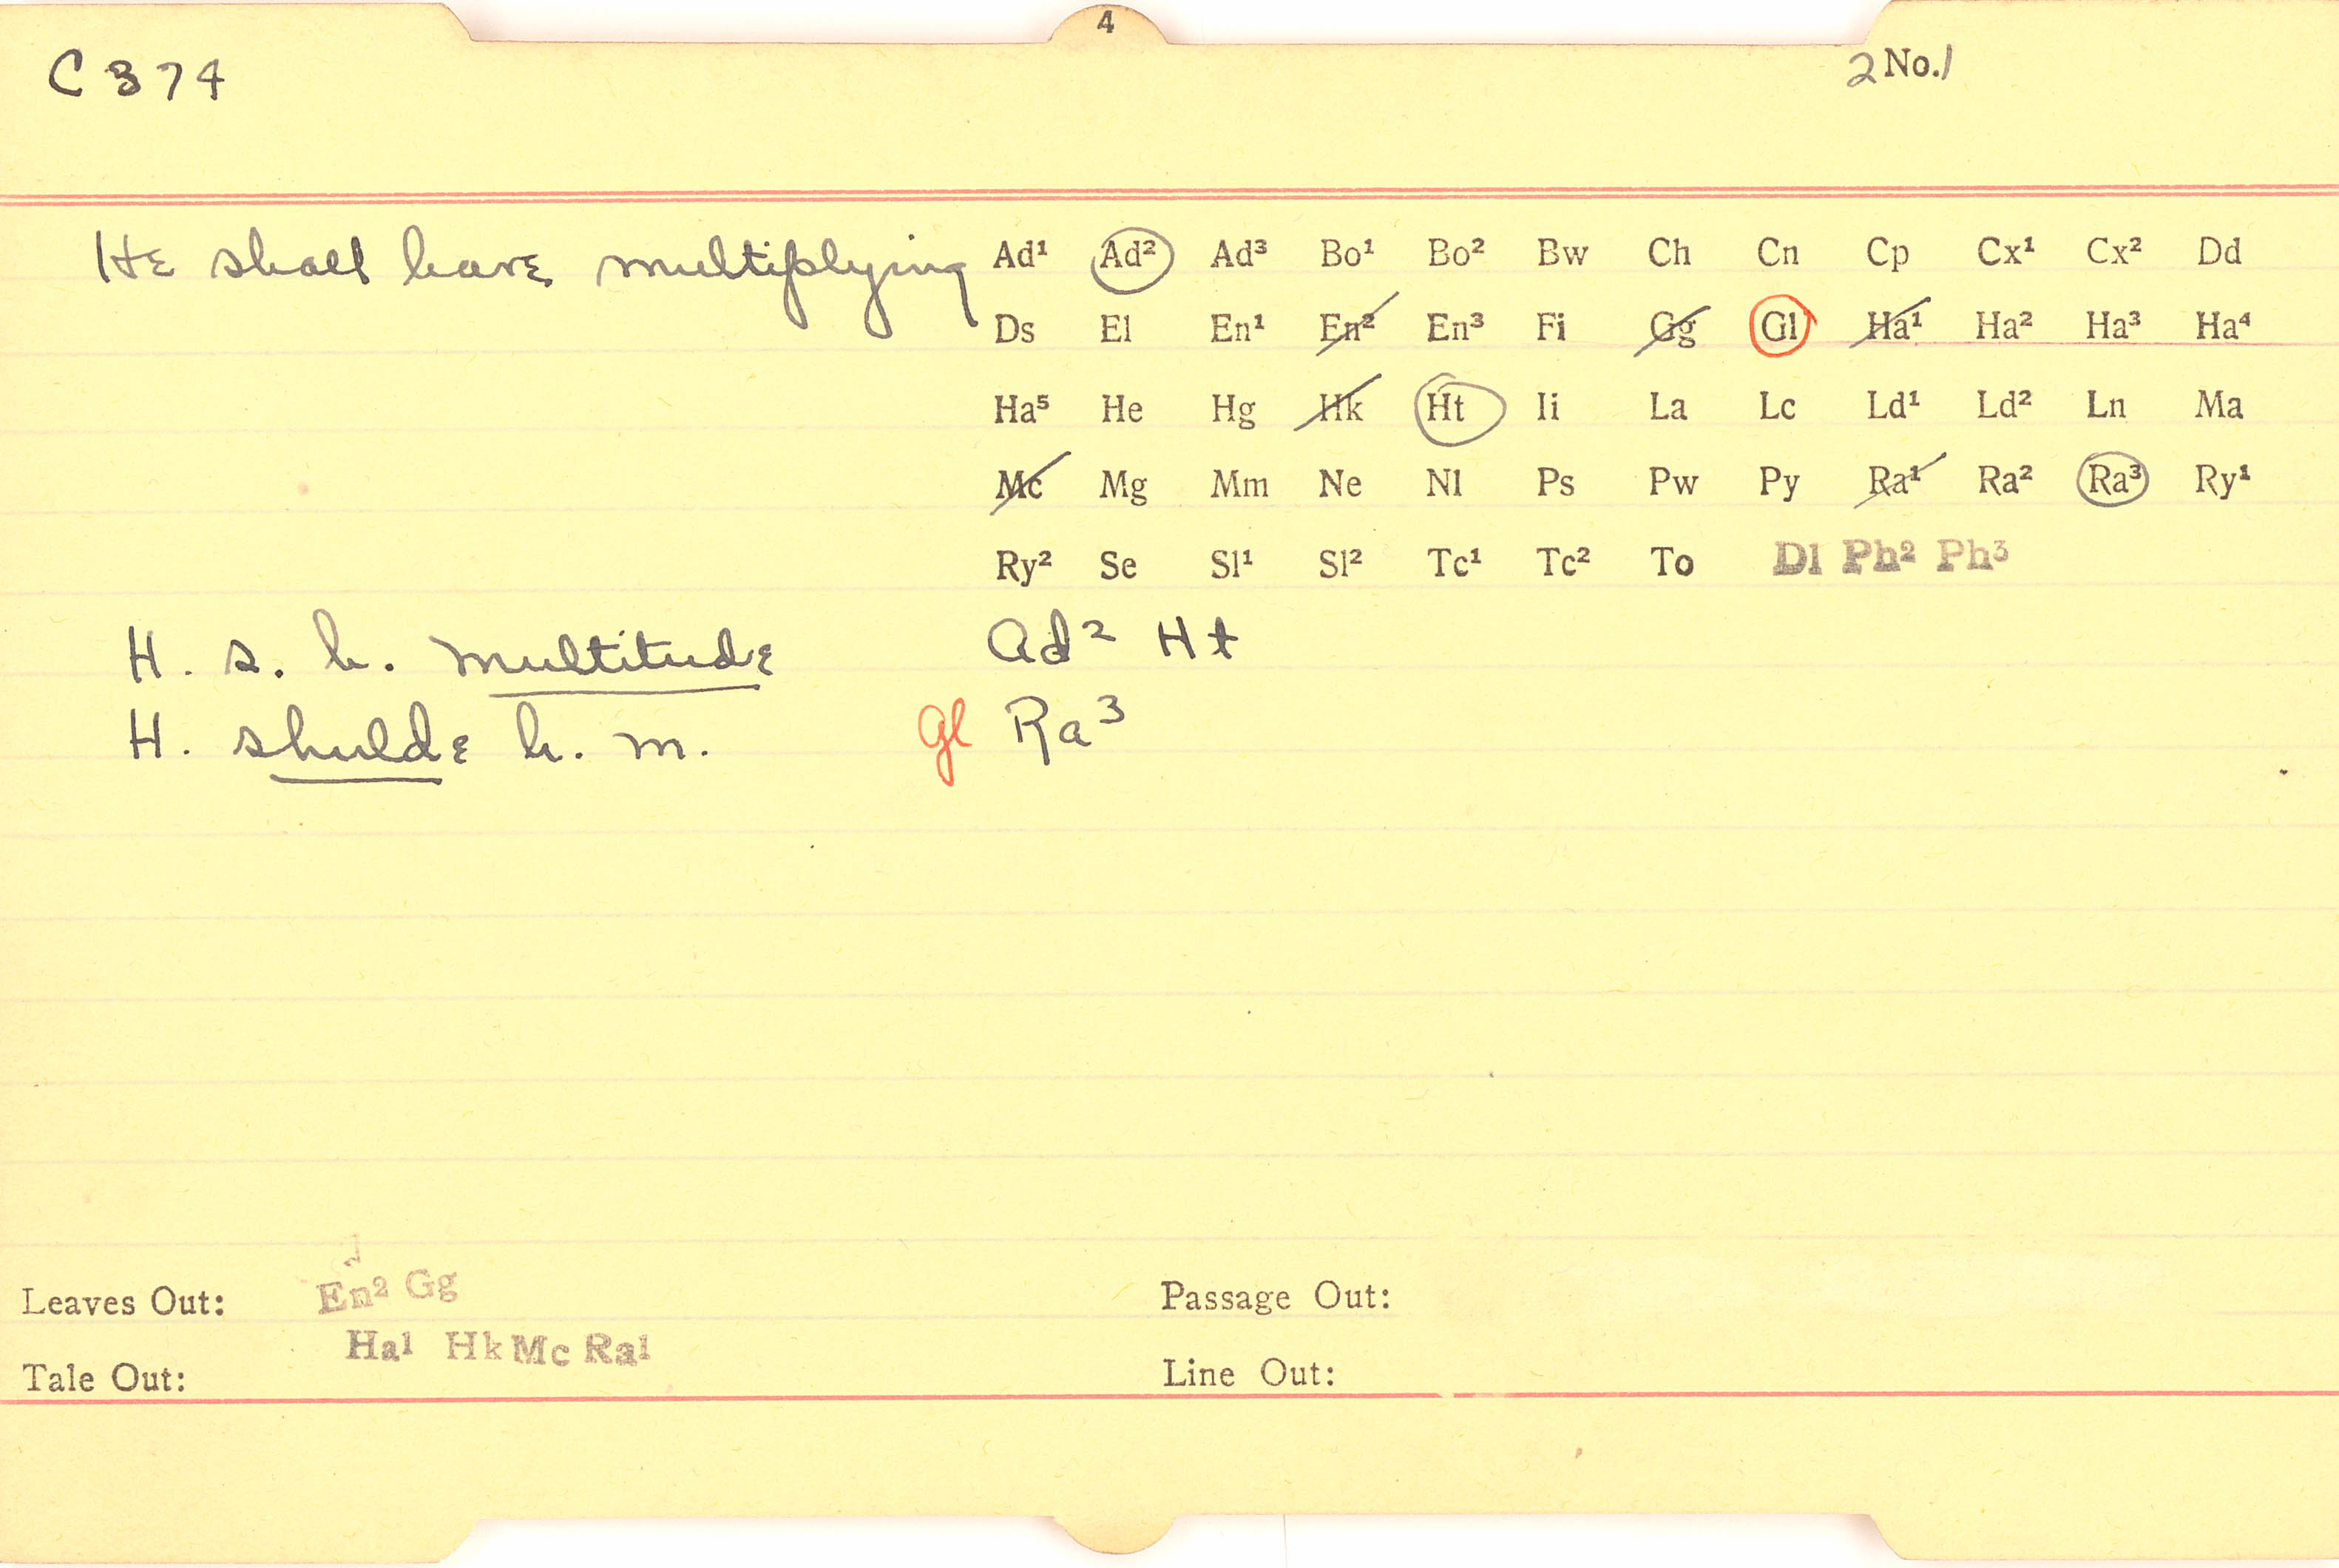 4
C 374
2 No. 1
He shall have multiplying
Ad¹ Ad² Ad³ Bo¹ Bo² Bw Ch Cn Cp Cx¹ Cx² Dd
Ds El En¹ En² En³ Fi Gg Gl Ha¹ Ha² Ha³ Ha⁴
Ha⁵ He Hg Hk Ht Ii La Lc Ld¹ Ld² Ln Ma
Mc Mg Mm Ne Nl Ps Pw Py Ra¹ Ra² Ra³ Ry¹
Ry² Se Sl¹ Sl² Tc¹ Tc² To Dl Ph² Ph³
H. s. h. multitude Ad² Ht
H. shulde h. m. Gl Ra³
Leaves Out: En² Gg
Ha¹ Hk Mc Ra¹
Tale Out:
Passage Out:
Line Out: